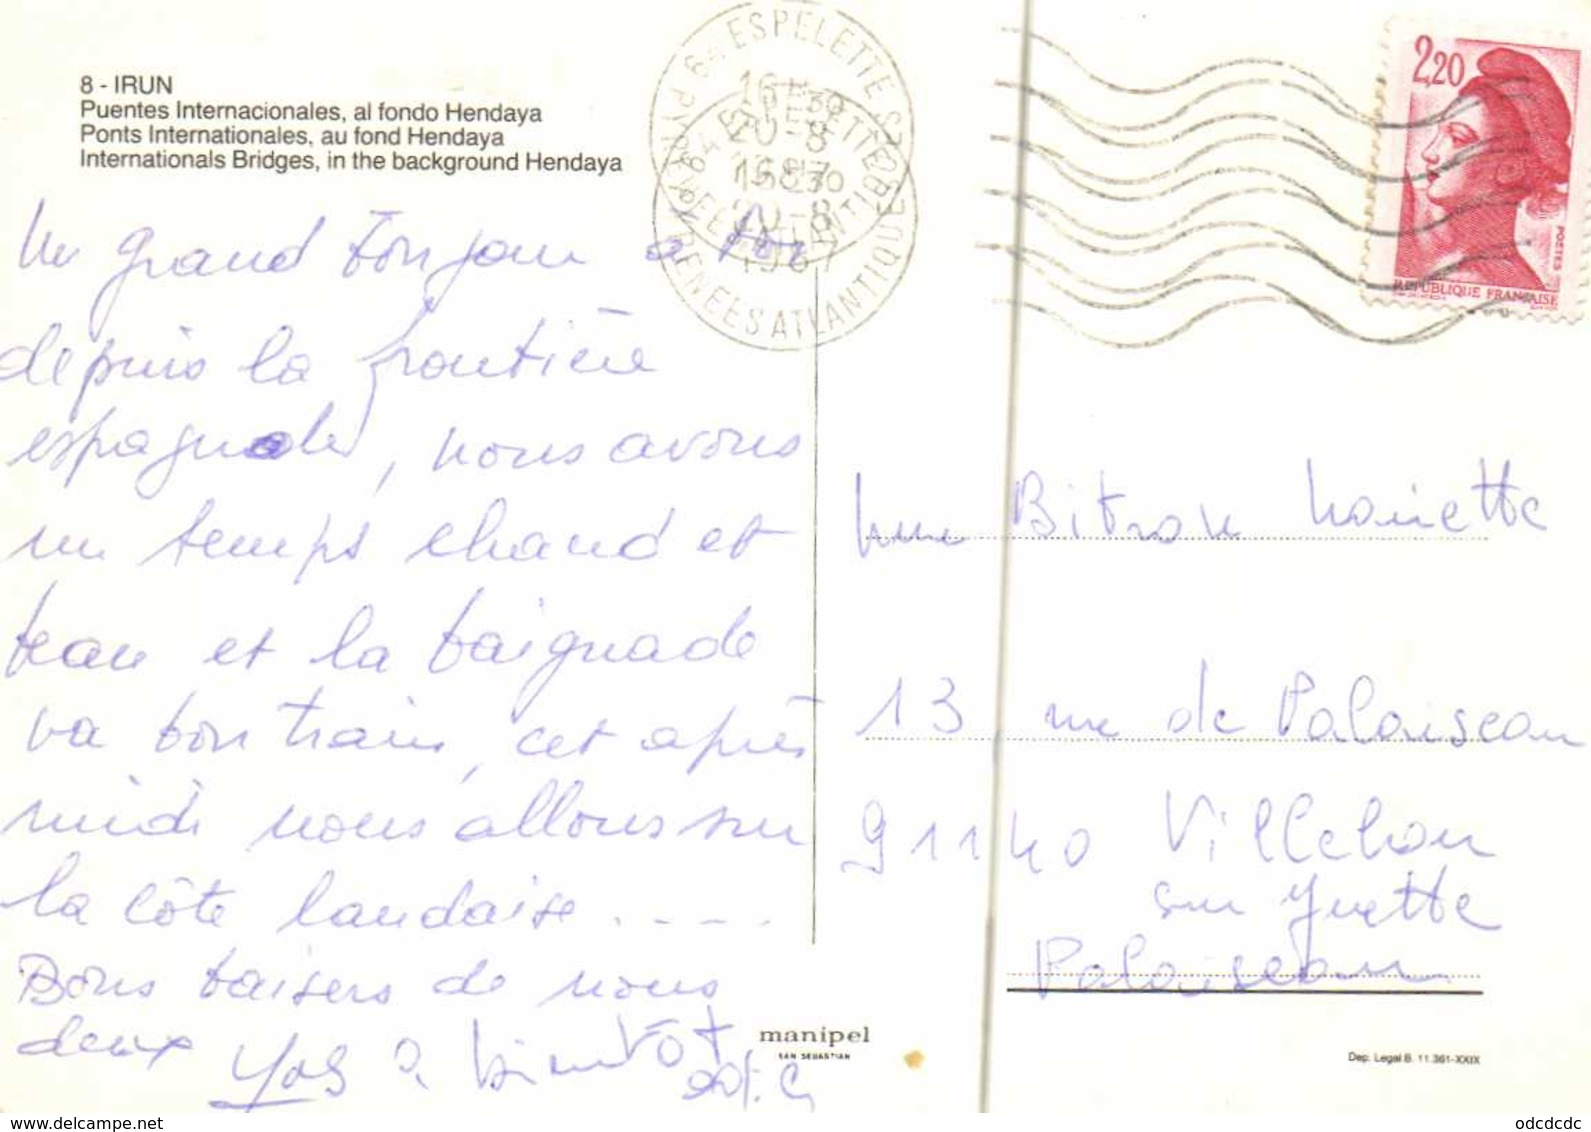 8 - IRUN
Puentes Internacionales, al fondo Hendaya
Ponts Internationales, au fond Hendaya
Internationals Bridges, in the background Hendaya
64 ESPELETTE
16H30
20-8
1987
PYRENEES ATLANTIQUES
2,20
POSTES
REPUBLIQUE FRANÇAISE
Un grand bonjour à toi
depuis la frontière
espagnole, nous avons
un temps chaud et
beau et la baignade
va bon train, cet après
midi nous allons sur
la côte landaise . - - .
Bons baisers de nous
deux
à bientôt
Mme Bitron
13 rue de Palaiseau
91140 Villebon
sur Yvette
Palaiseau
manipel
SAN SEBASTIAN
Dep. Legal B. 11.361-XXIX
www.delcampe.net
odcdcdc